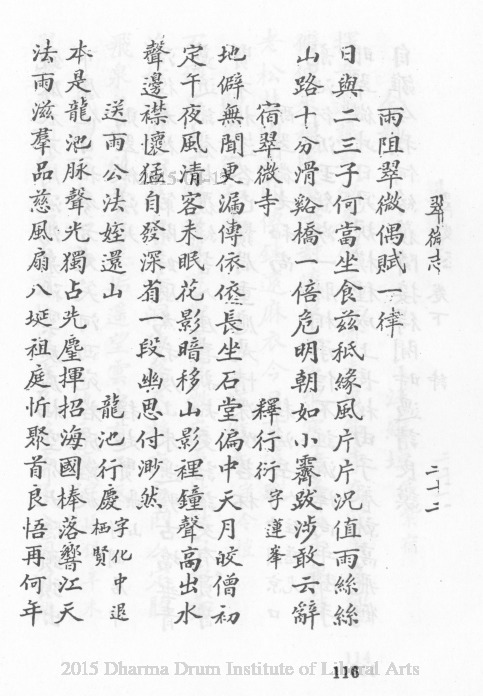 翠微志
二十二
雨阻翠微偶賦一律
日與二三子何當坐食茲秖緣風片片況值雨絲絲
山路十分滑谿橋一倍危明朝如小霽跋涉敢云辭
宿翠微寺 釋行衍字蓮峯
地僻無聞更漏傳依依長坐石堂偏中天月皎僧初
定午夜風清客未眠花影暗移山影裡鐘聲高出水
聲邊襟懷猛自發深省一段幽思付渺然
送雨公法姪還山 龍池行慶字化中退栖賢
本是龍池脉聲光獨占先麈揮招海國棒落響江天
法雨滋羣品慈風扇八埏祖庭忻聚首良悟再何年
116
2015 Dharma Drum Institute of Liberal Arts